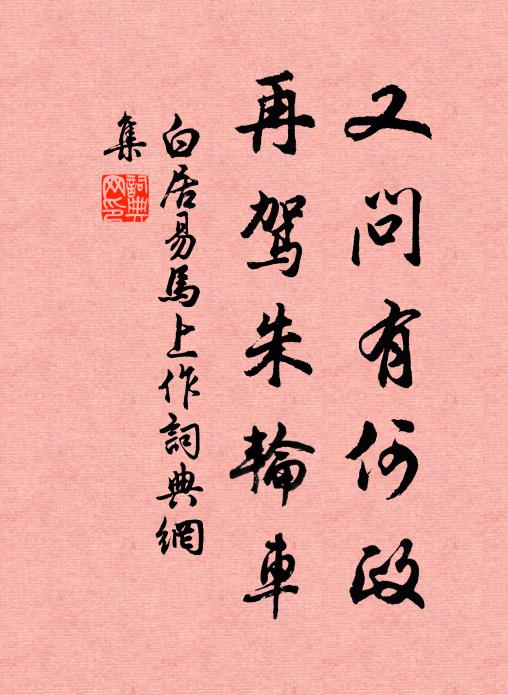 又問有何政
再駕朱輪車
白居易馬上作詞典網
集
詞典網印